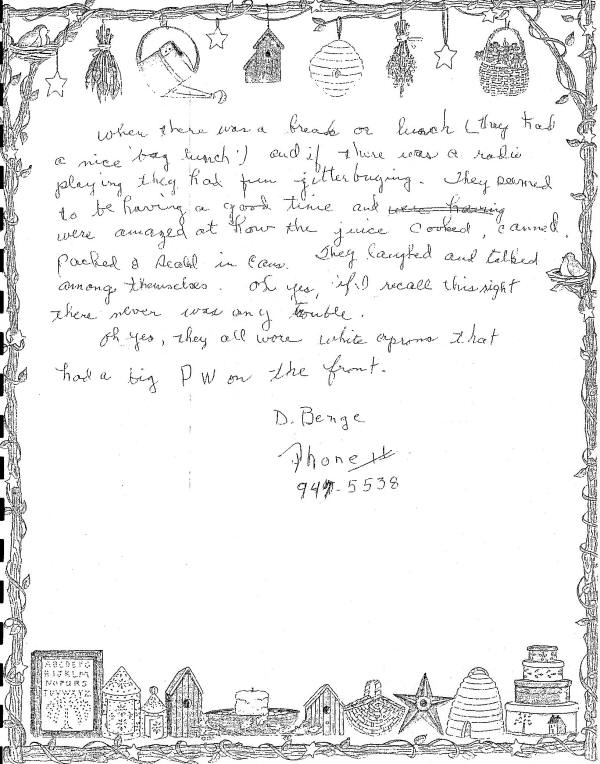 when there was a break or lunch (they had
a nice "bag lunch") and if there was a radio
playing they had fun jitterbuging. They seemed
to be having a good time and were having
were amazed at how the juice cooked, canned,
packed & sealed in cans. They laughed and talked
among themselves. Oh yes, if I recall this right
there never was any trouble.
Oh yes, they all wore white aprons that
had a big PW on the front.
D. Benge
Phone #
947-5538
ABCDEFG
HIJKLM
NOPQRS
TUVWXYZ